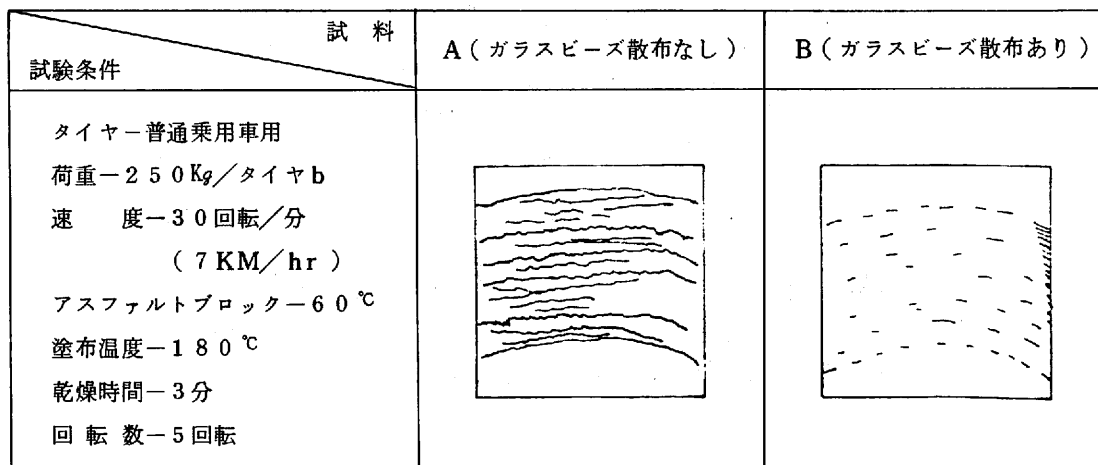 試 料
試験条件
A(ガラスビーズ散布なし)
B(ガラスビーズ散布あり)
タイヤー普通乗用車用
荷重ー250Kg/タイヤb
速 度ー30回転/分
(7KM/hr)
アスファルトブロックー60℃
塗布温度ー180℃
乾燥時間ー3分
回 転 数ー5回転